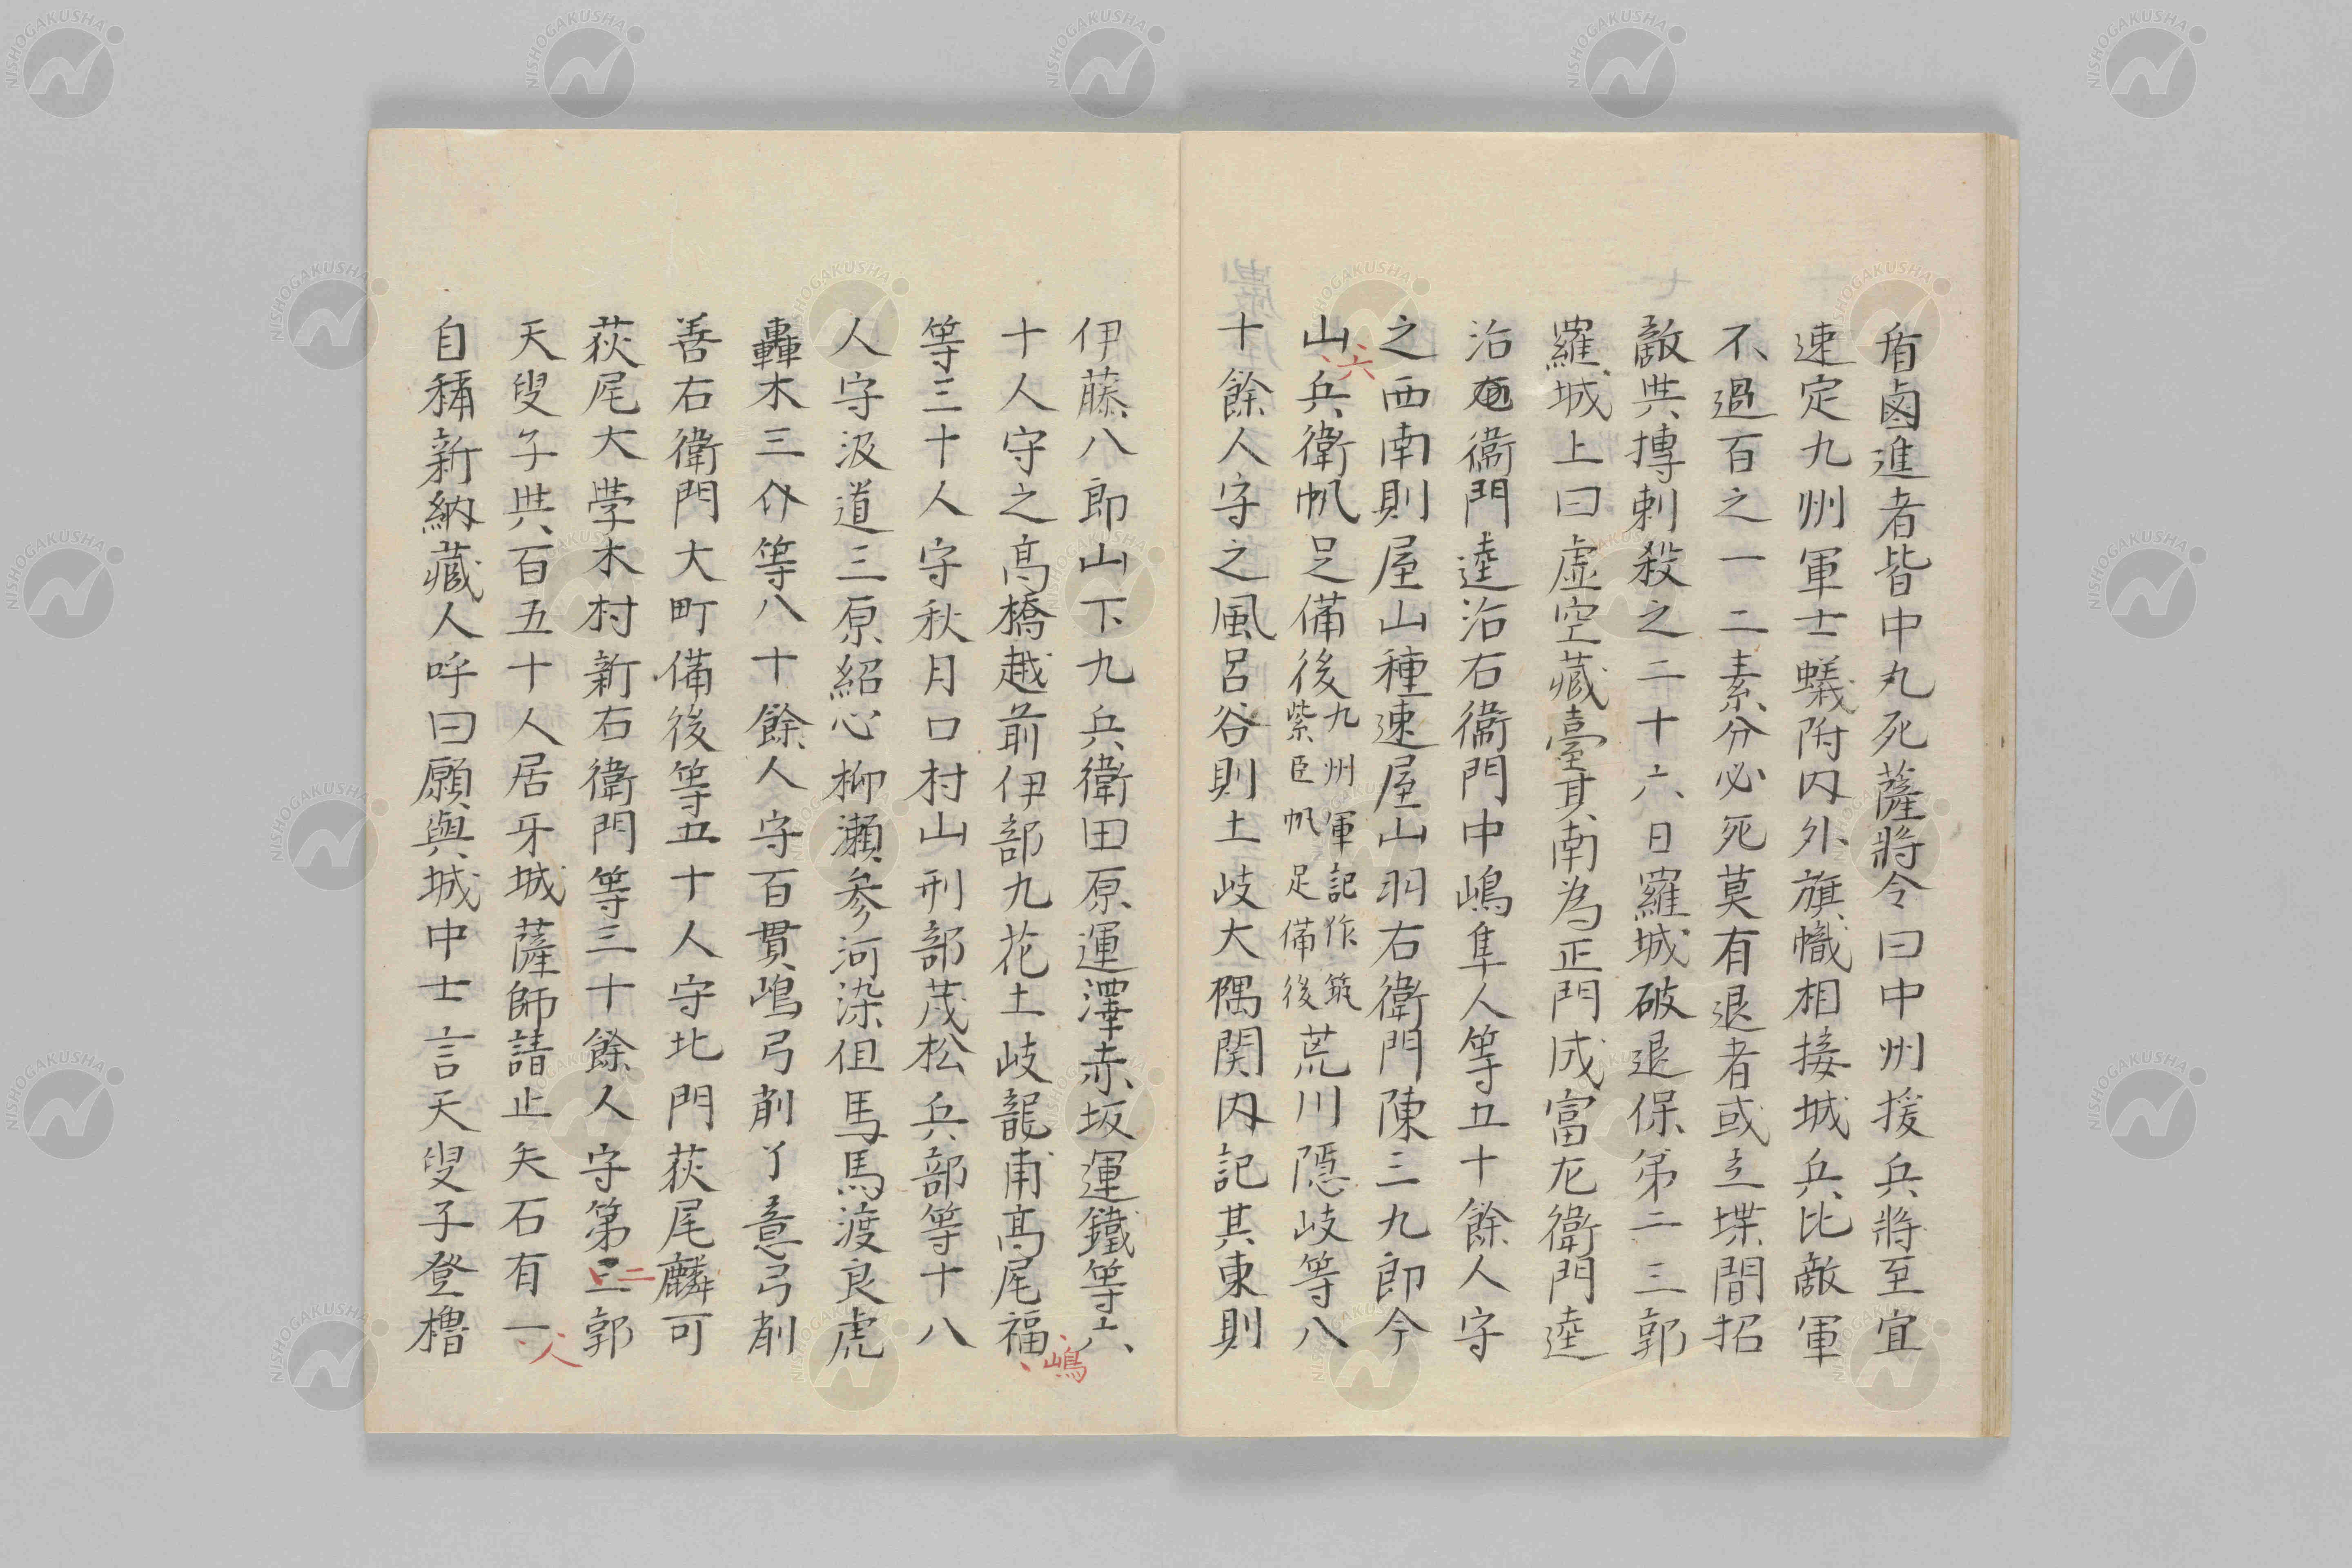 盾鹵進者皆中丸死薩將令曰中州援兵將至宜
速定九州軍士蟻附内外旗幟相接城兵比敵軍
不過百之一二素分必死莫有退者或立堞間招
敵共摶刺殺之二十六日羅城破退保第二三郭
羅城上曰虚空藏臺其南為正門成富左衛門逵
治右衛門逵治右衛門中嶋隼人等五十餘人守
之西南則屋山種速屋山羽右衛門陳三九郎今
山六兵衛帆足備後九州軍記作筑紫臣帆足備後荒川隠岐等八
十餘人守之風呂谷則土岐大隅関内記其東則
伊藤八郎山下九兵衛田原運澤赤坂運鐵等六
十人守之高橋越前伊部九花土岐龍甫高尾福嶋
等三十人守秋月口村山刑部茂松兵部等十八
人守汲道三原紹心柳瀬参河染但馬馬渡良虎
轟木三介等八十餘人守百貫嶋弓削了意弓削
善右衛門大町備後等五十人守北門荻尾麟可
荻尾大学木村新右衛門等三十餘人守第三二郭
天叟子共百五十人居牙城薩師請止矢石有一人
自稱新納藏人呼曰願與城中士言天叟子登櫓
NISHOGAKUSHA